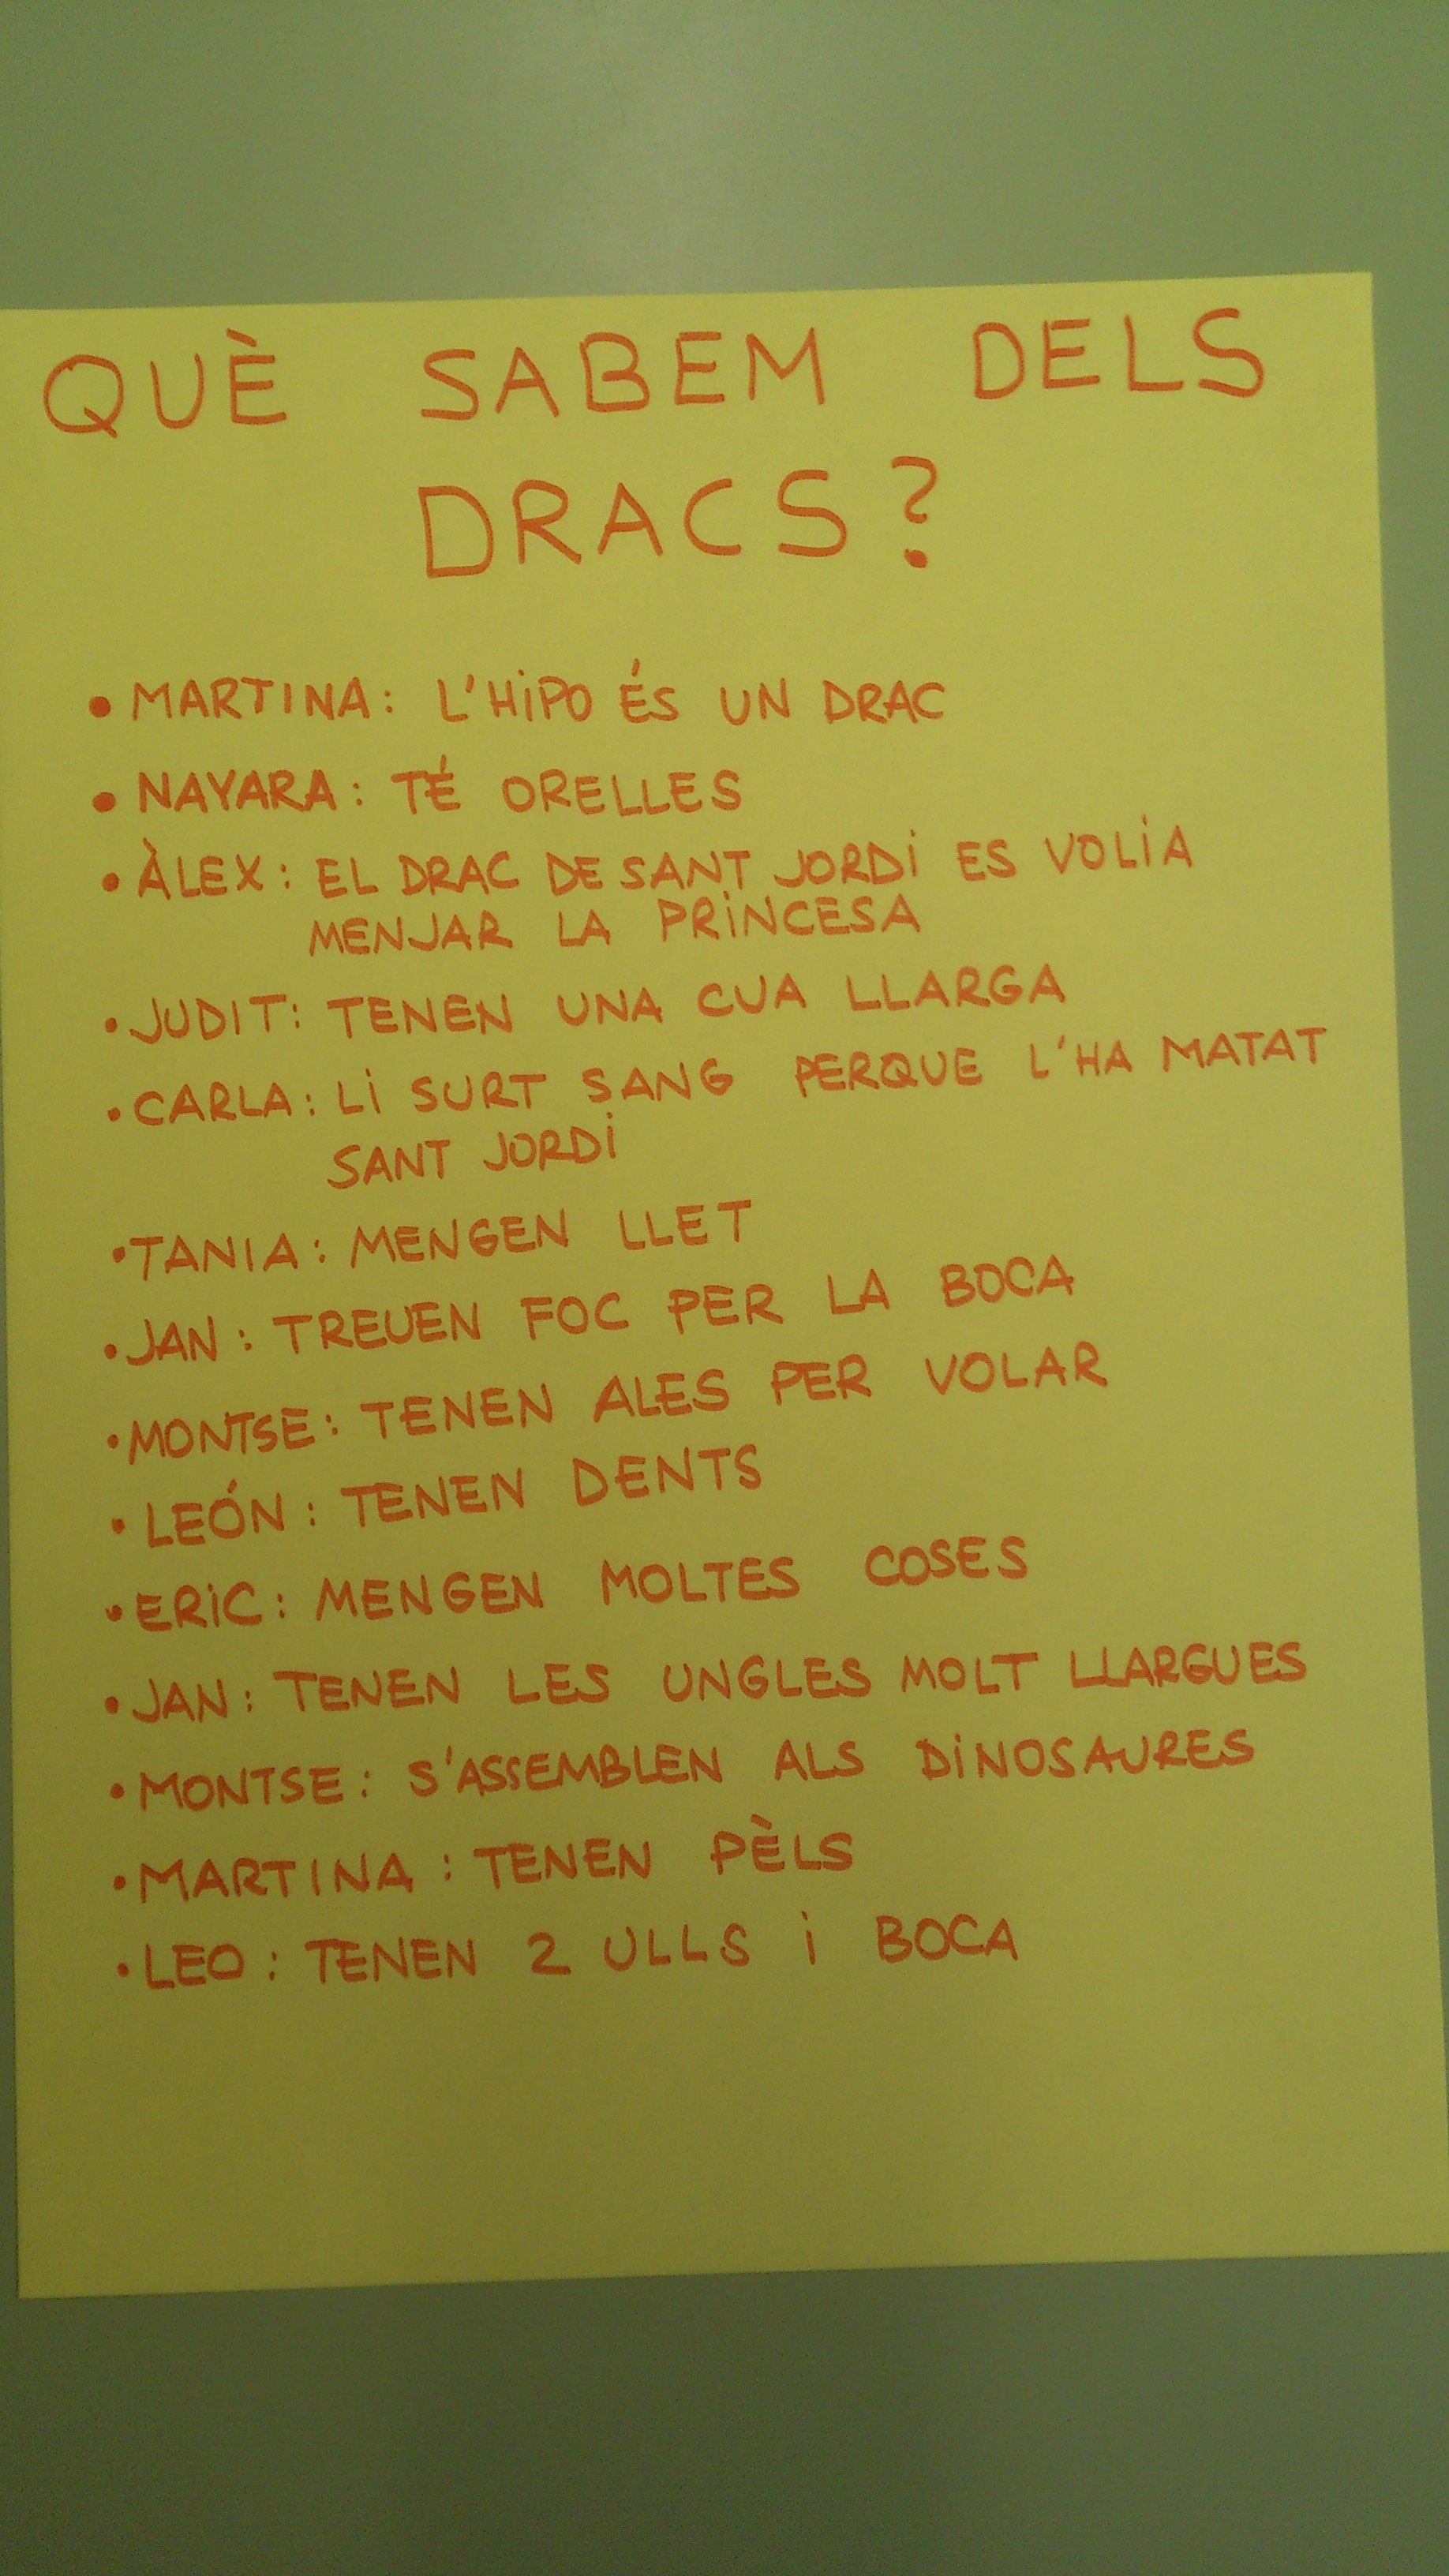 QUÈ SABEM DELS
DRACS?
• MARTINA: L'HiPO ÉS UN DRAC
• NAYARA: TÉ ORELLES
• ÀLEX: EL DRAC DE SANT JORDi ES VOLiA
MENJAR LA PRiNCESA
• JUDIT: TENEN UNA CUA LLARGA
• CARLA: Li SURT SANG PERQUE L'HA MATAT
SANT JORDi
• TANIA: MENGEN LLET
• JAN: TREUEN FOC PER LA BOCA
• MONTSE: TENEN ALES PER VOLAR
• LEÓN: TENEN DENTS
• ERiC: MENGEN MOLTES COSES
• JAN: TENEN LES UNGLES MOLT LLARGUES
• MONTSE: S'ASSEMBLEN ALS DiNOSAURES
• MARTINA: TENEN PÈLS
• LEO: TENEN 2 ULLS i BOCA